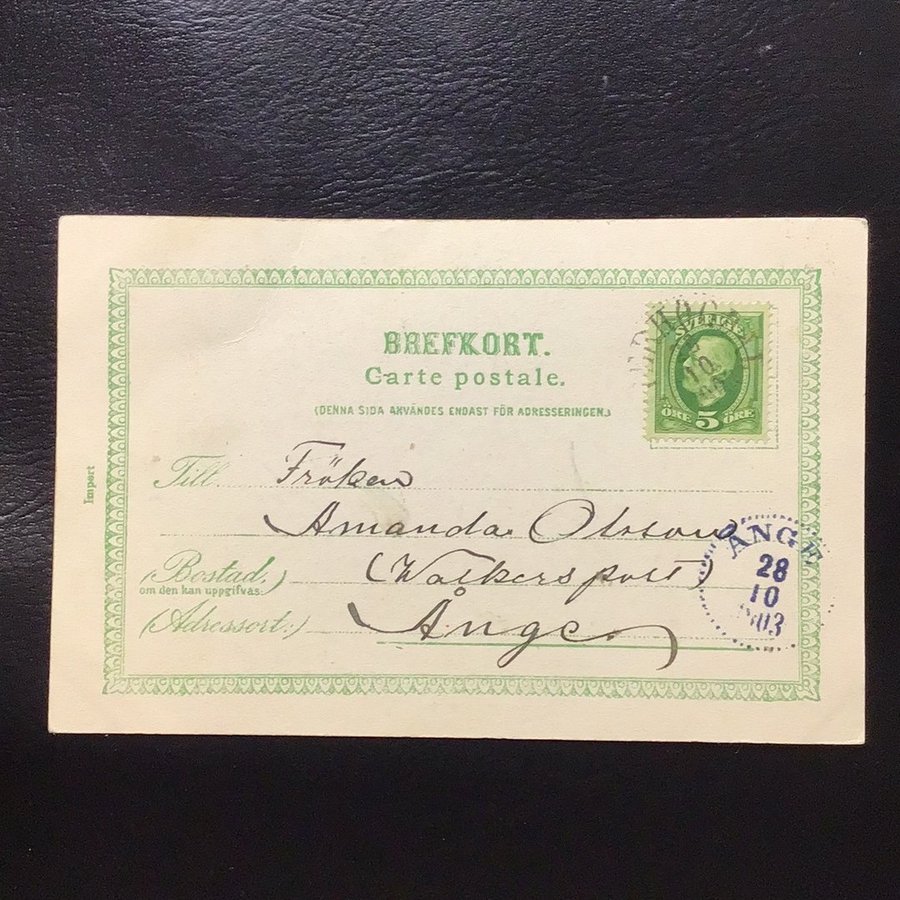 BREFKORT.
Carte postale.
(DENNA SIDA ANVÄNDES ENDAST FÖR ADRESSERINGEN.)
SVERIGE
ÖRE 5 ÖRE
10
Import
Till Fröken
Amanda Olsson
(Bostad.) (Walkers post)
om den kan uppgifvas.
(Adressort:) Ånge
ÅNGE
28
10
1903